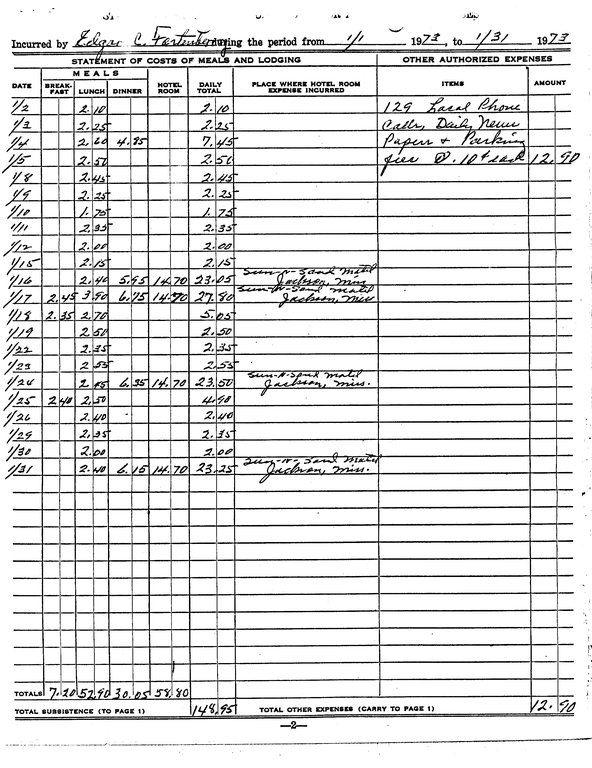 Incurred by Edgar C. Fortenberry during the period from 1/1 1973, to 1/31 1973
STATEMENT OF COSTS OF MEALS AND LODGING OTHER AUTHORIZED EXPENSES
MEALS
DATE BREAK-FAST LUNCH DINNER HOTEL ROOM DAILY TOTAL PLACE WHERE HOTEL ROOM EXPENSE INCURRED ITEMS AMOUNT
1/2 2.10 2.10 129 Local Phone
1/3 2.25 2.25 Calls, Daily News
1/4 2.60 4.85 7.45 Papers & Parking
1/5 2.50 2.50 fees @ .10¢ each 12.90
1/8 2.45 2.45
1/9 2.25 2.25
1/10 1.75 1.75
1/11 2.35 2.35
1/12 2.00 2.00
1/15 2.15 2.15
1/16 2.40 5.95 14.70 23.05 Sun-n-Sand Motel Jackson, Miss
1/17 2.45 3.90 6.75 14.70 27.80 Sun-N-Sand Motel Jackson, Miss
1/18 2.35 2.70 5.05
1/19 2.50 2.50
1/22 2.35 2.35
1/23 2.55 2.55
1/24 2.45 6.35 14.70 23.50 Sun-N-Sand Motel Jackson, Miss.
1/25 2.40 2.50 4.90
1/26 2.40 2.40
1/29 2.35 2.35
1/30 2.00 2.00
1/31 2.40 6.15 14.70 23.25 Sun-N-Sand Motel Jackson, Miss.
TOTALS 7.20 52.90 30.05 58.80
TOTAL SUBSISTENCE (TO PAGE 1) 148.95 TOTAL OTHER EXPENSES (CARRY TO PAGE 1) 12.90
—2—